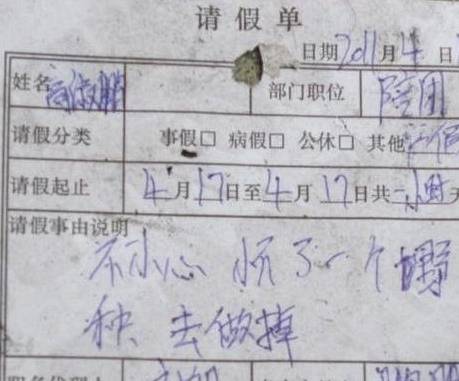 请假单
日期2011月4日
姓名 部门职位 陪
请假分类 事假□ 病假□ 公休□ 其他
请假起止 4月17日至4月17日共一小时天
请假事由说明
不小心 怀了一个
种 去做掉